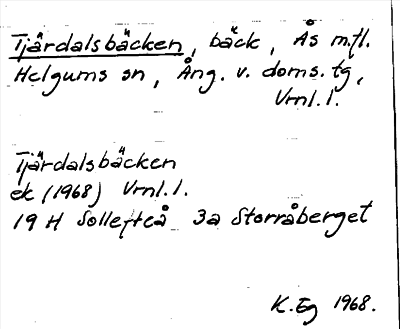 Tjärdalsbäcken, bäck, Ås m.fl.
Helgums sn, Ång. v. doms. tg,
Vrnl. 1.
Tjärdalsbäcken
ek (1968) Vrnl. 1.
19 H Sollefteå 3a Storråberget
K. Eg 1968.